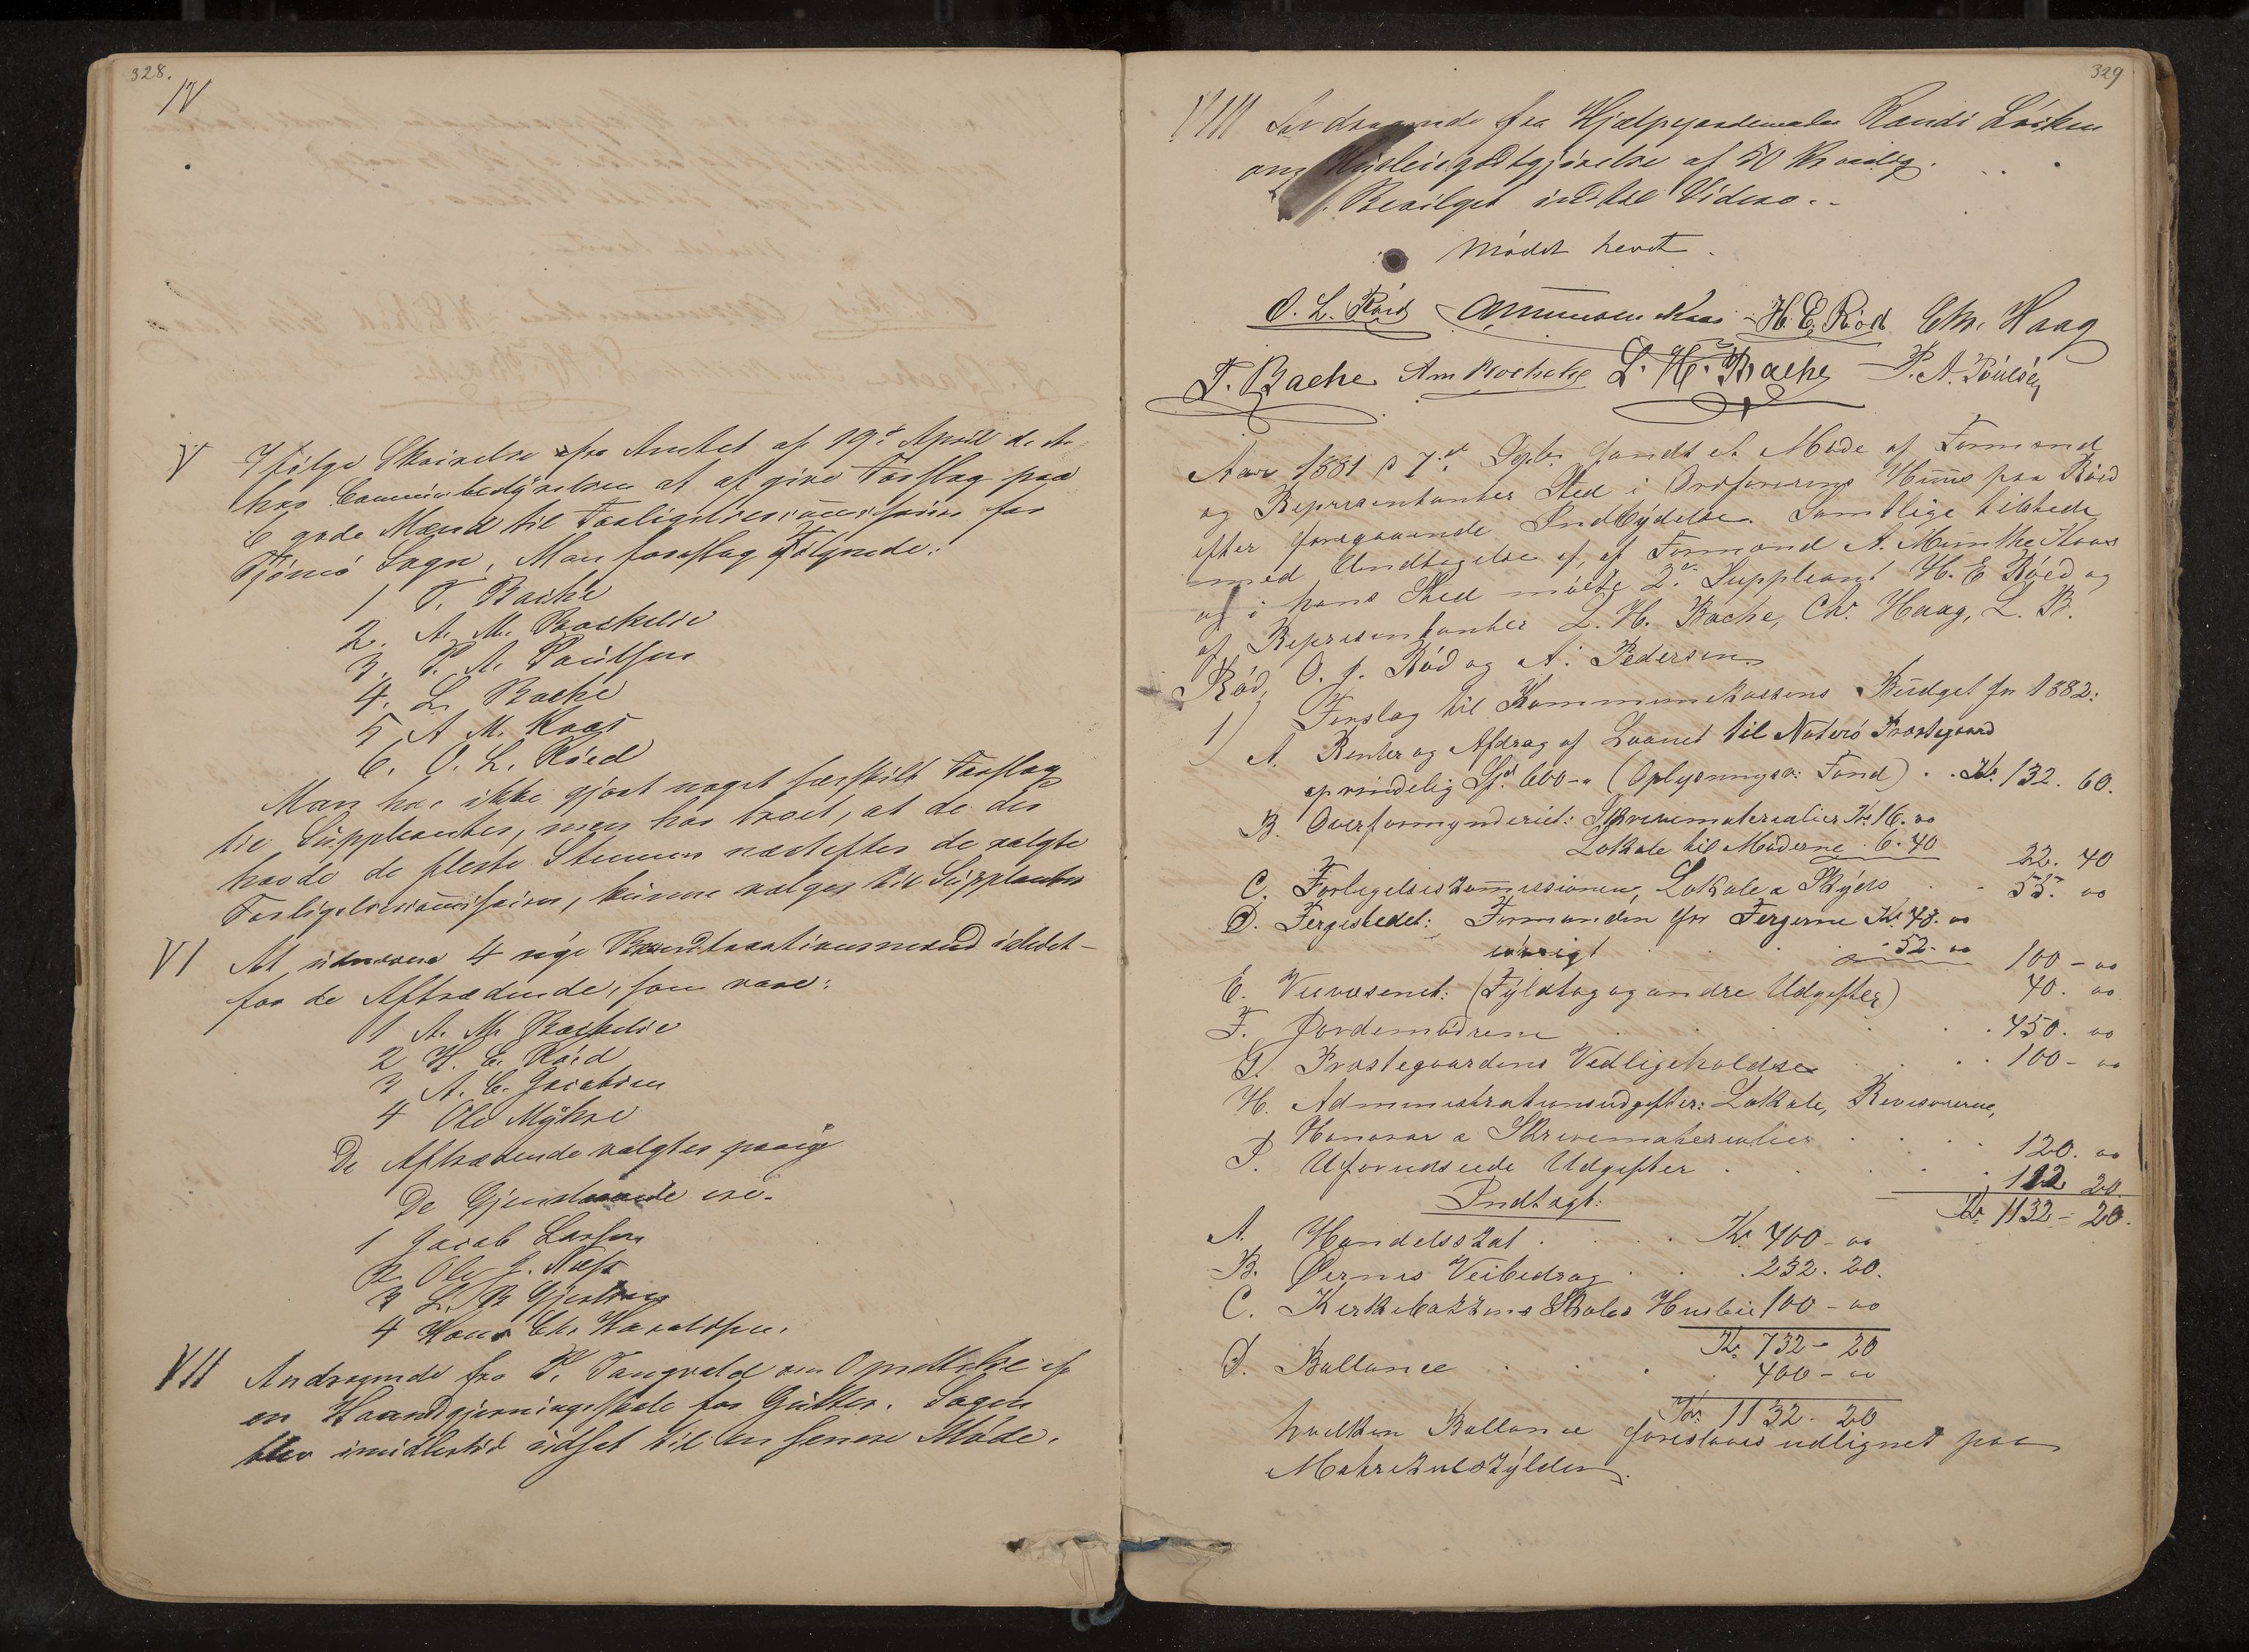 328.
IV
V Ifölge Skrivelse fra Amtet af 19de April d. A.
har Communbestyrelsen at afgive Forslag paa
6 gode Mænd til Forligelsescommission for
Tjömö Sogn, Man foreslog Fölgende:
1 T. Bache
2. A. M. Brockelie
3. P. A. Paulsen
4. L. Bache
5 A M. Kaas
6. O. L. Röed
Man har ikke gjort noget særskilt Forslag
til Suppleanter, men har troet, at de der
havde de fleste Stemmer næstefter de valgte
Forligelsescommissairer, kunne vælges til Suppleanter
VI At udnævne 4 nÿe Brandtaxationsmænd istedet
for de Aftrædende, som vare:
1 A. M. Brockelie
2 H. E. Röed
3 A. C. Jacobsen
4 Ole Mÿhre
De Aftrædende valgtes paanÿ
De Gjenstaaende ere.
1 Jacob Larsen
2. Ole J. Næss
3 L. B Gjertsen
4 Hans Chr. Haraldsen.
VII Andragende fra P. Tangvald om Oprettelse af
en Haandgjerningsskole for Gutter. Sagen
blev imidlertid udsat til en senere Möde.
329
VIII Andragende fra Hjælpejordemoder Randi Löiken
om Huusleiegodtgjörelse af 50 Kr aarlig.
Bevilget indtil Videre.
Mödet hevet.
O. L. Röed A Munthe Kaas H. E. Röd Chr. Haag
T. Bache A M Brockelie L. H. Bache P. A. Poulsen
Aar 1881 d 7de Septbr fandt et Möde af Formænd
og Repræsentanter Sted i Ordförerens Huus paa Röed
efter foregaaende Indbÿdelse. Samtlige tilstede
med Undtagelse af, af Formænd A. Munthe Kaas
og i hans Sted mödte 2den Suppleant H. E Röed og
af Repræsentanter L. H. Bache, Chr. Haag, L. B.
Röd, O. J. Röd og A. Pedersen.
1) Forslag til Kommunekassens Budget for 1882:
A. Renter og Afdrag af Laanet til Næterö Præstegaard
oprindelig Spd. 600 - " (Oplysningsv. Fond) . . Kr. 132. 60.
B. Overformynderiet: Skrivematerialier Kr. 16. 00
Lokale til Möderne . 6. 40 22. 40
C. Forligelseskommissionen, Lokale & Skÿds 55. 00
D. Fergestedet: Formanden for Fergerne Kr. 48. 00
iövrigt 52. 00 100 - 00
E. Veivæsenet: (Tÿlatag og andre Udgifter) 40. 00
F. Jordemödrene . 450. 00
G. Præstegaardens Vedligeholdse . . 100 - 00
H. Administrationsudgifter: Lokale, Revisorerne,
Honorar & Skrivematerialier 120. 00
I. Uforudseede Udgifter 112 20.
Kr. 1132 - 20.
Indtægt:
A. Handelsskat Kr. 400 - 00
B. Öernes Veibidrag . 232. 20.
C. Kirkekassens Skoles Husleie 100 - 00
Kr. 732 - 20
D. Ballance 400 - 00
Kr. 1132. 20
hvilken Ballance foreslaaes udlignet paa
Matrikulskÿlden.